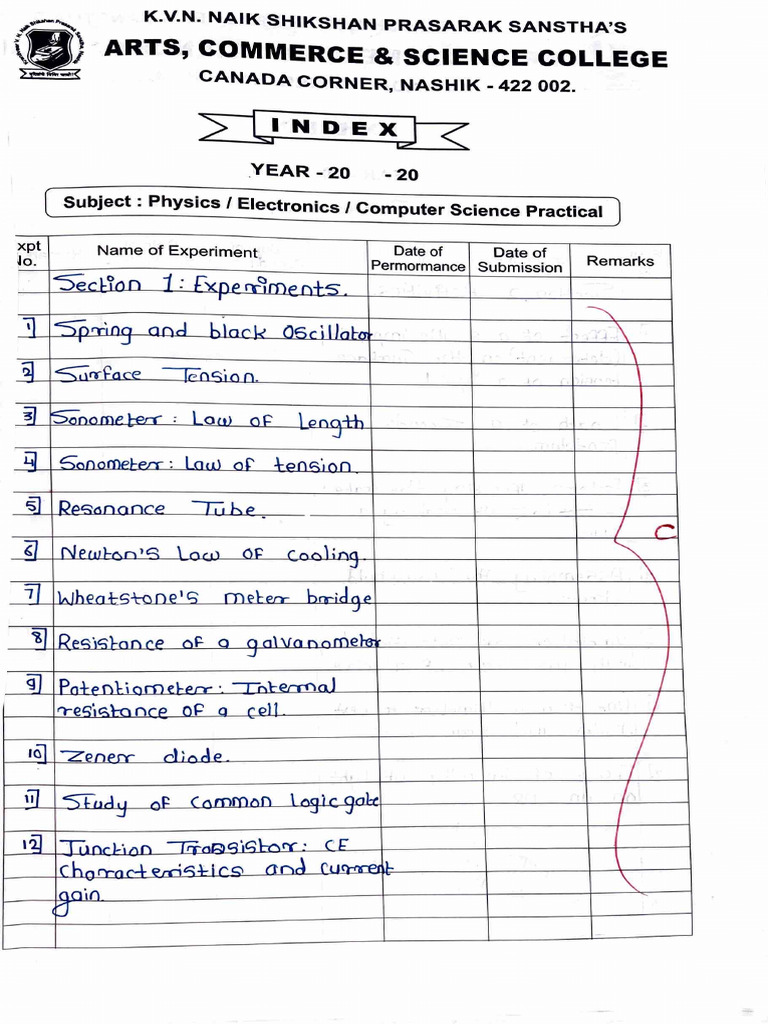 K.V.N. NAIK SHIKSHAN PRASARAK SANSTHA'S
ARTS, COMMERCE & SCIENCE COLLEGE
CANADA CORNER, NASHIK - 422 002.
INDEX
YEAR - 20 - 20
Subject : Physics / Electronics / Computer Science Practical
xpt No. Name of Experiment Date of Permormance Date of Submission Remarks
Section 1: Experiments.
1] Spring and black Oscillator
2] Surface Tension.
3] Sonometer : Law of Length
4] Sonometer : Law of tension.
5] Resonance Tube.
C
6] Newton's Law of cooling.
7] Wheatstone's meter bridge
8] Resistance of a galvanometer
9] Potentiometer : Internal
resistance of a cell.
10] Zener diode.
11] Study of common logic gate
12] Junction Transistor: CE
characteristics and current
gain.